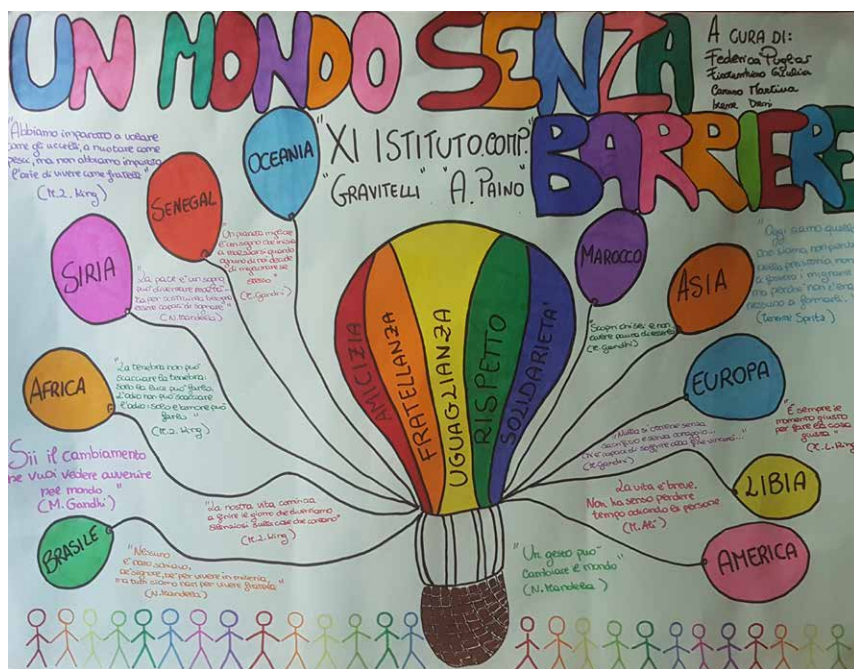 UN MONDO SENZA
BARRIERE
A CURA DI:
Federica
Giulia
Caruso Martina
Irene
"XI ISTITUTO.COMP."
"GRAVITELLI" "A. PAINO"
"Abbiamo imparato a volare
come gli uccelli, a nuotare come
pesci, ma non abbiamo imparato
l'arte di vivere come fratelli"
(M.L. King)
OCEANIA
SENEGAL
SIRIA
AFRICA
BRASILE
MAROCCO
ASIA
EUROPA
LIBIA
AMERICA
Un pianeta migliore
è un sogno che inizia
a realizzarsi quando
ognuno di noi decide
di migliorare se
stesso"
(M. Gandhi)
"La pace è un sogno
può diventare realtà
ma per costruirla bisogna
essere capaci di sognare"
(N. Mandela)
"La tenebra non può
scacciare la tenebra:
solo la luce può farlo.
L'odio non può scacciare
l'odio: solo l'amore può
farlo."
(M.L. King)
Sii il cambiamento
che vuoi vedere avvenire
nel mondo
(M. Gandhi)
"La nostra vita comincia
a finire il giorno che diventiamo
silenziosi sulle cose che contano"
(M.L. King)
"Nessuno
è nato schiavo,
né signore, né per vivere in miseria,
ma tutti siamo nati per vivere
(N. Mandela)
AMICIZIA
FRATELLANZA
UGUAGLIANZA
RISPETTO
SOLIDARIETA'
"Scopri chi sei e non
avere paura di esserlo"
(M. Gandhi)
"Oggi siamo quelli
che siamo, non perché
nella preistoria non
ci fossero i migranti
ma perché non c'era
nessuno a fermarli."
"Nulla si ottiene senza
sacrificio e senza coraggio...
(M. Gandhi)
"È sempre il
momento giusto
per fare la cosa
giusta"
(M.L. King)
La vita è breve.
Non ha senso perdere
tempo odiando le persone.
(M. Alì)
"Un gesto può
cambiare il mondo"
(N. Mandela)